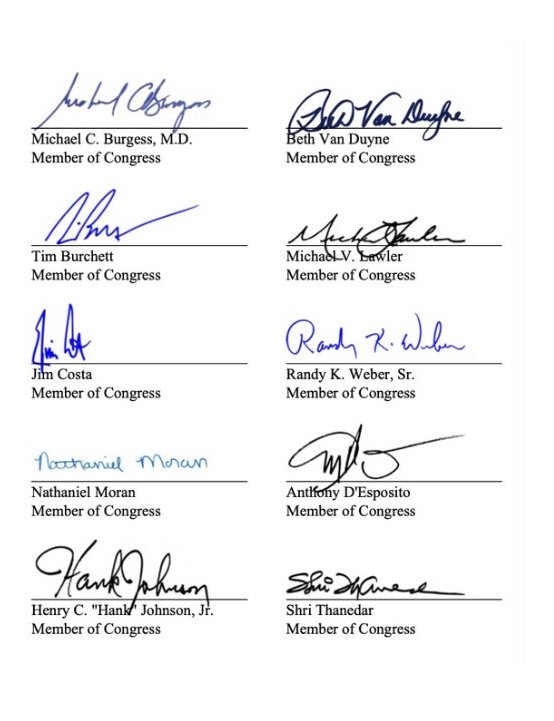 Michael C Burgess
Michael C. Burgess, M.D.
Member of Congress
Beth Van Duyne
Beth Van Duyne
Member of Congress
Tim Burchett
Member of Congress
Michael Lawler
Michael V. Lawler
Member of Congress
Jim Costa
Member of Congress
Randy K. Weber
Randy K. Weber, Sr.
Member of Congress
Nathaniel Moran
Nathaniel Moran
Member of Congress
Anthony D'Esposito
Member of Congress
Hank Johnson
Henry C. "Hank" Johnson, Jr.
Member of Congress
Shri Thanedar
Shri Thanedar
Member of Congress